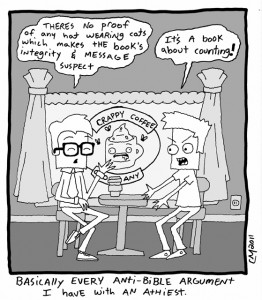 THERES NO PROOF
of any hat WEARING cats
which makes THE book's
INTEGRITY & MESSAGE
SUSPECT
It's A book
about counting!
CRAPPY COFFEE
ANY
EM2011
BASICALLY EVERY ANTI-BIBLE ARGUMENT
I HAVE WITH AN ATHIEST.